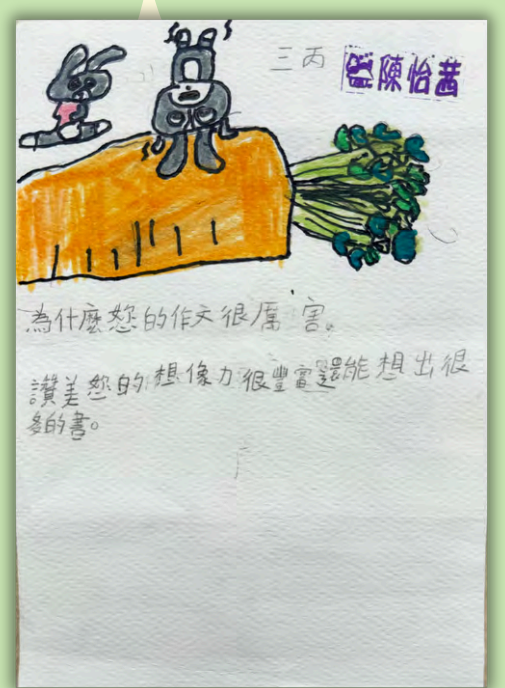 三丙 陳怡茜
為什麼您的作文很厲害。
讚美您的想像力很豐富還能想出很
多的書。